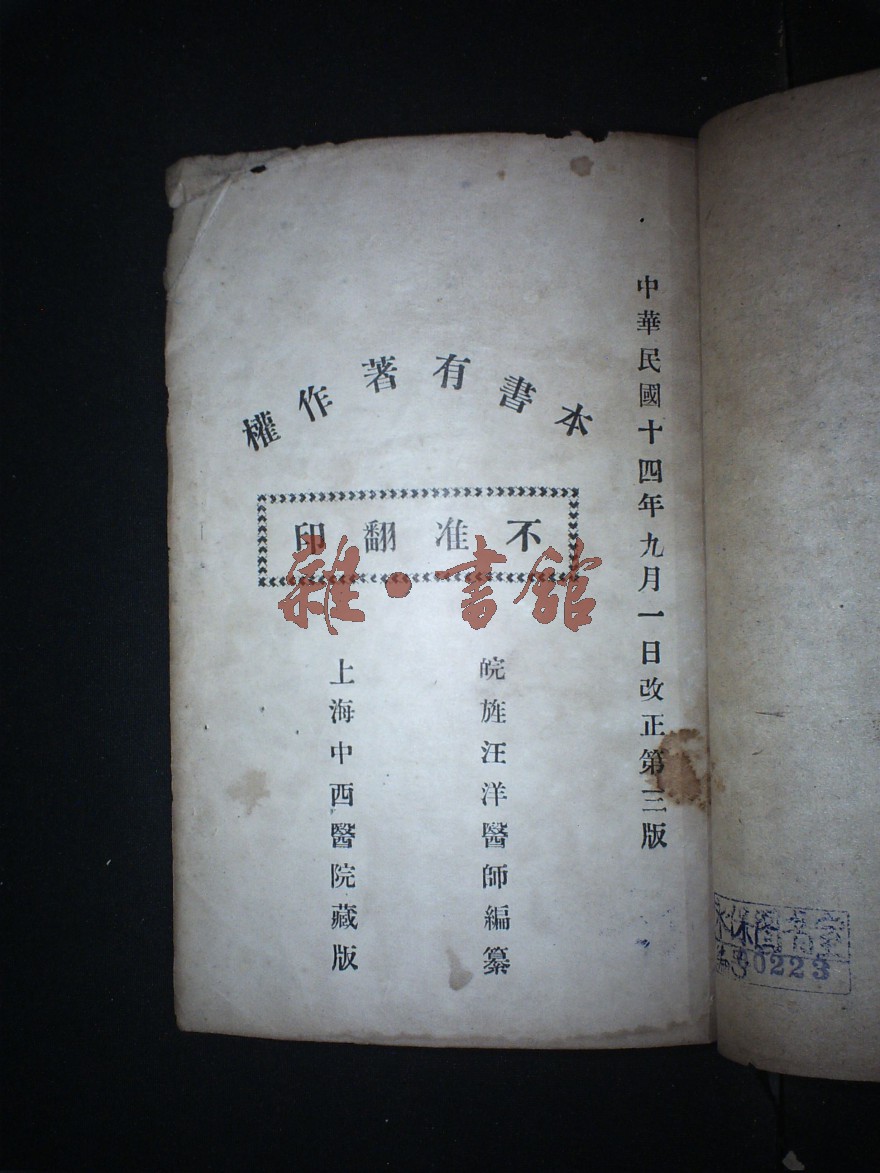 中華民國十四年九月一日改正第三版
本書有著作權
不准翻印
雜·書館
皖旌汪洋醫師編纂
上海中西醫院藏版
图书室
30223